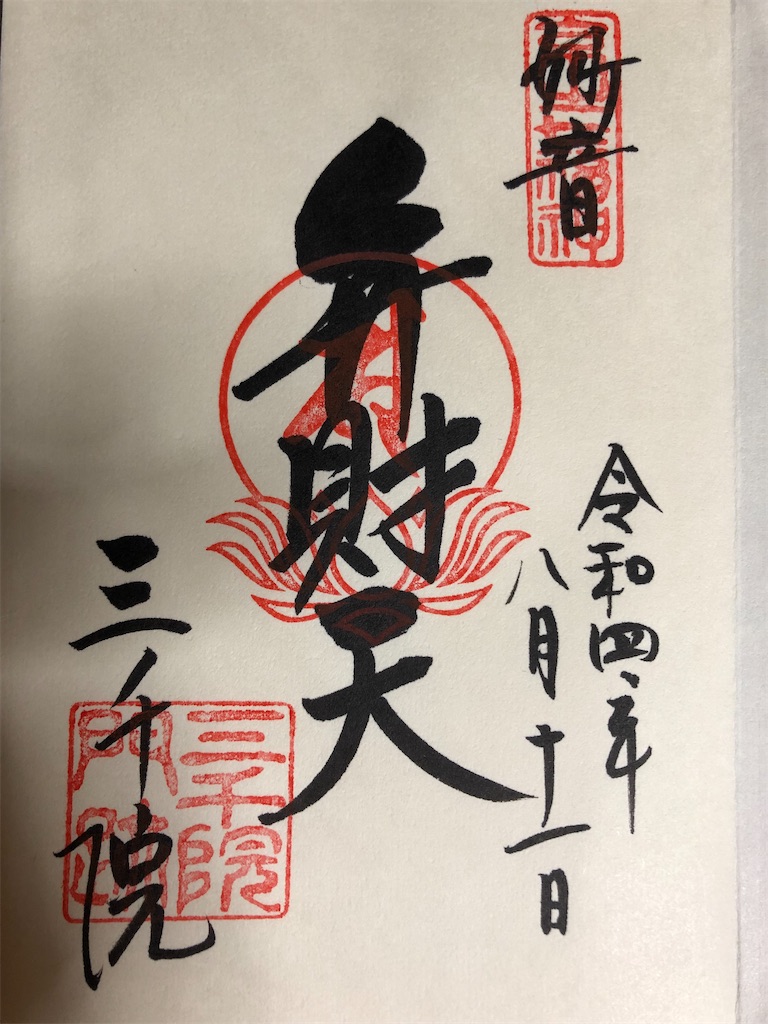 妙音
令和四年
八月十一日
弁財天
三千院
三千院
門跡